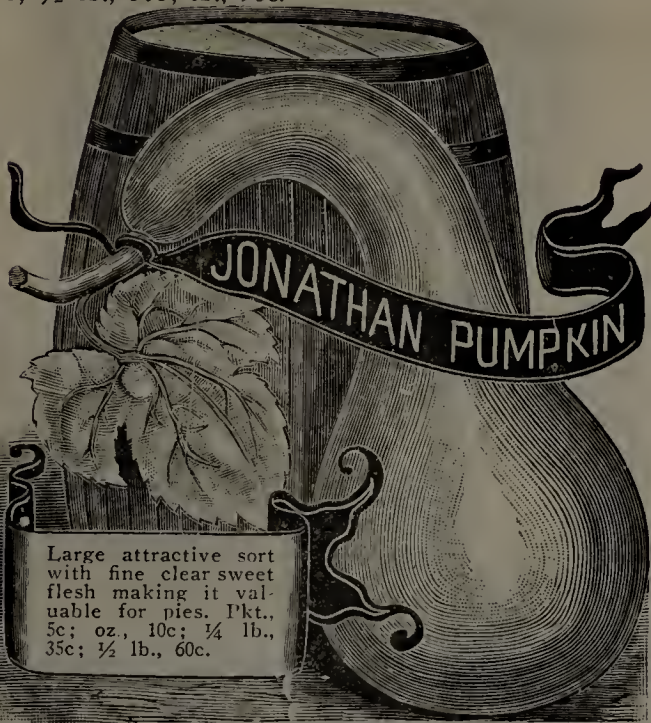 JONATHAN PUMPKIN
Large attractive sort
with fine clear sweet
flesh making it val-
uable for pies. Pkt.,
5c; oz., 10c; ¼ lb.,
35c; ½ lb., 60c.